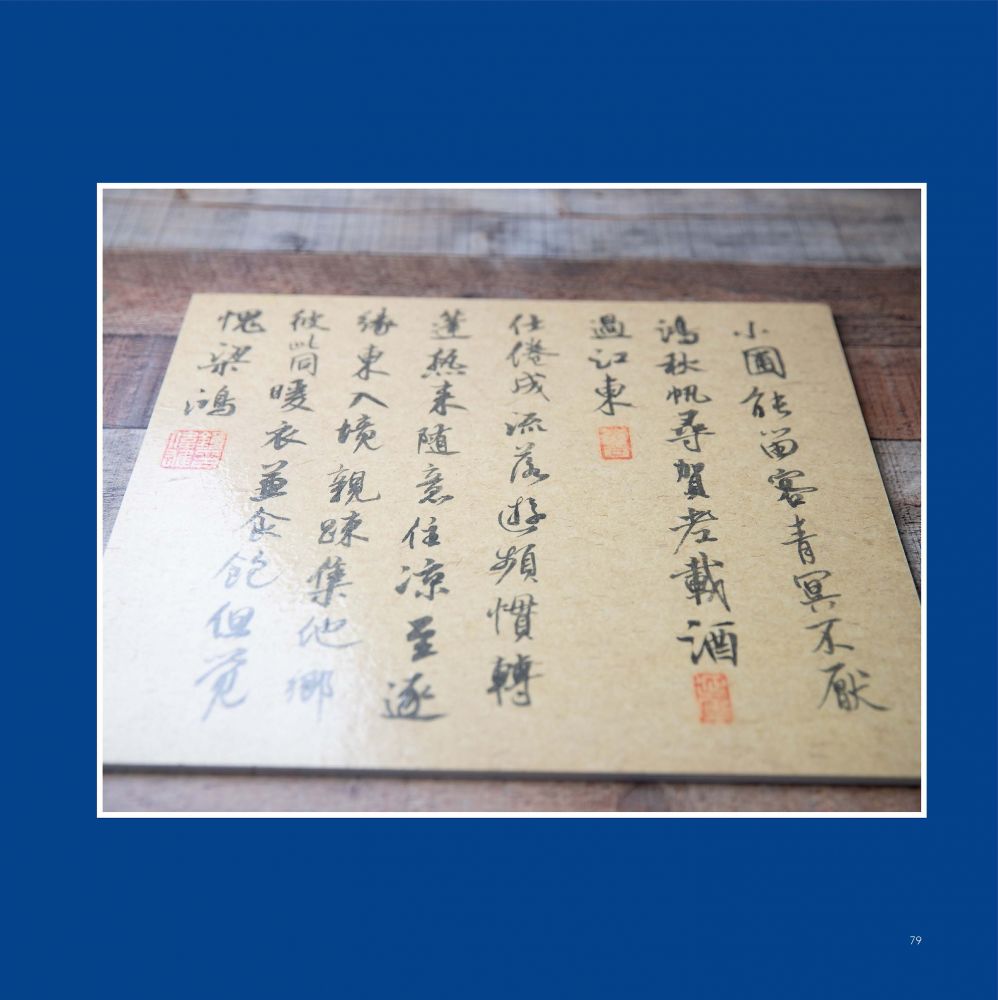 小圃能留客青冥不厭
鴻秋帆尋賀老載酒
過江東
仕倦成流落遊頻慣轉
蓬熱来随意住凉至逐
緣東入境親疎集他鄉
彼此同暖衣兼食飽但覺
愧梁鴻
79